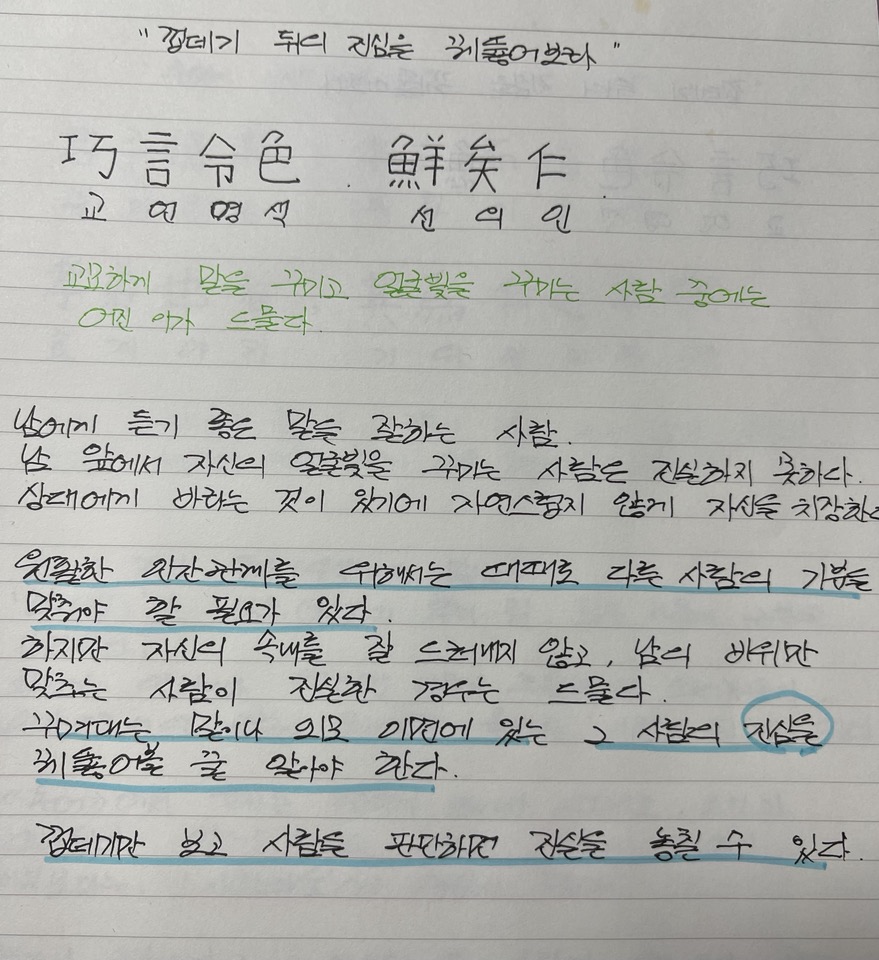 "껍데기 뒤의 진심을 꿰뚫어보라"
巧言令色 . 鮮矣仁 .
교 언 영 색 선 의 인
교묘하게 말을 꾸미고 얼굴빛을 꾸미는 사람 중에는
어진 이가 드물다.
남에게 듣기 좋은 말을 잘하는 사람.
남 앞에서 자신의 얼굴빛을 꾸미는 사람은 진실하지 못하다.
상대에게 바라는 것이 있기에 자연스럽지 않게 자신을 치장한다
원활한 인간관계를 위해서는 때때로 다른 사람의 기분을
맞춰야 할 필요가 있다.
하지만 자신의 속내를 잘 드러내지 않고, 남의 비위만
맞추는 사람이 진실한 경우는 드물다.
꾸며대는 말이나 외모 이면에 있는 그 사람의 진심을
꿰뚫어볼 줄 알아야 한다.
껍데기만 보고 사람을 판단하면 진실을 놓칠 수 있다.